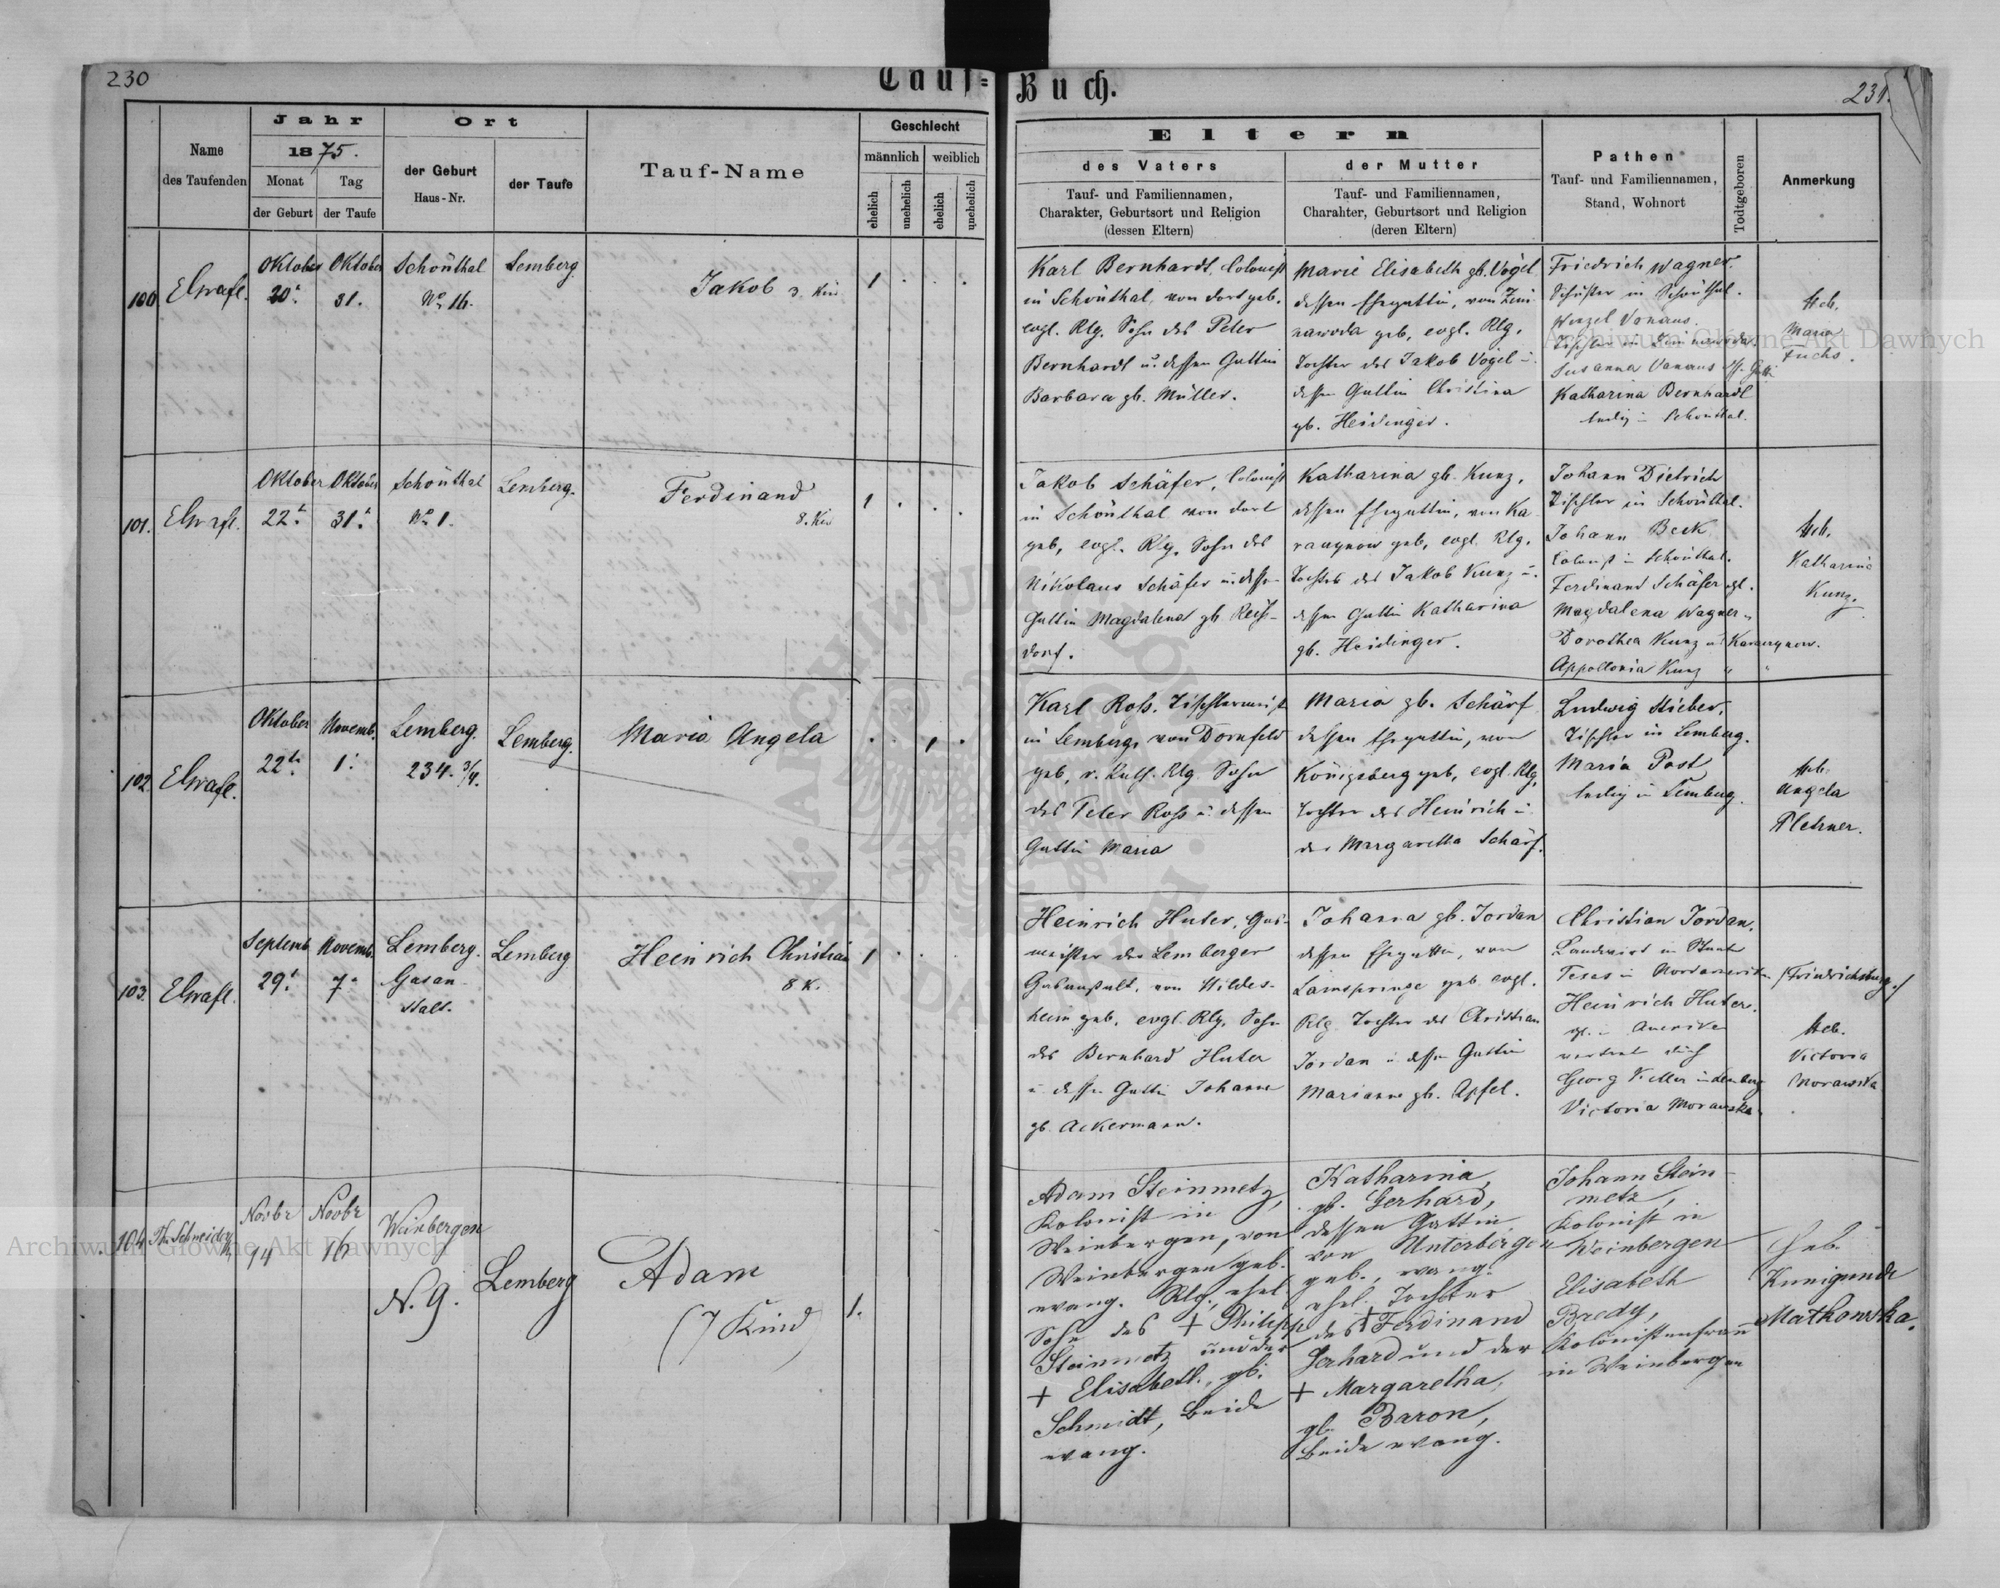 230
Tauf-Buch.
231.
Name
des Taufenden
Jahr
1875.
Monat
Tag
der Geburt
der Taufe
Ort
der Geburt
Haus-Nr.
der Taufe
Tauf-Name
Geschlecht
männlich
weiblich
ehelich
unehelich
ehelich
unehelich
Eltern
des Vaters
Tauf- und Familiennamen,
Charakter, Geburtsort und Religion
(dessen Eltern)
der Mutter
Tauf- und Familiennamen,
Charakter, Geburtsort und Religion
(deren Eltern)
Pathen
Tauf- und Familiennamen,
Stand, Wohnort
Todtgeboren
Anmerkung
100
Oktober
20.
Oktober
31.
Schönthal
No 16.
Lemberg
Jakob 3. Kind
1
Karl Bernhardt, Colonist
in Schönthal, von dort geb.
evgl. Rlg. Sohn des Peter
Bernhardt u. dessen Gattin
Barbara gb. Müller.
Marie Elisabeth gb. Vogel
dessen Ehegattin, von Zim-
nawoda geb, evgl. Rlg.
Tochter des Jakob Vogel u.
dessen Gattin Christina
gb. Heidinger.
Friedrich Wagner
Schuster in Schönthal.
Vonaus.
Tischler in Zimnawoda.
Susanna Vonaus
Katharina Bernhardt
ledig in Schönthal.
Heb.
Maria
Fuchs.
101.
Oktober
22.
Oktober
31.
Schönthal
No 1.
Lemberg.
Ferdinand
8. Kind
1
Jakob Schäfer, Colonist
in Schönthal von dort
geb, evgl. Rlg. Sohn des
Nikolaus Schäfer u. dessen
Gattin Magdalena gb Reif-
dorf.
Katharina gb. Kunz,
dessen Ehegattin, von Ka-
geb, evgl. Rlg.
Tochter des Jakob Kunz u.
dessen Gattin Katharina
gb. Heidinger.
Johann Dietrich
Tischler in Schönthal.
Johann Beck
Colonist in Schönthal.
Ferdinand Schäfer
Magdalena Wagner
Dorothea Kunz
Appollonia Kunz
Heb.
Katharina
Kunz.
102.
Oktober
22.
Novemb.
1.
Lemberg.
234. 3/4.
Lemberg.
Maria Angela
Karl Roß. Tischlermeist
in Lemberg, von Dornfeld
geb, r. kath. Rlg. Sohn
des Peter Roß u. dessen
Gattin Maria
Maria gb. Schärf
dessen Ehegattin, von
Königsberg geb, evgl. Rlg,
Tochter des Heinrich u.
der Margaretha Schärf.
Ludwig Stieber,
Tischler in Lemberg.
Maria Post
ledig in Lemberg.
Heb.
Angela
Pletzner.
103.
Septemb.
29.
Novemb.
7.
Lemberg.
Gasan-
stalt.
Lemberg
Heinrich Christian
8 K.
1
Heinrich Huter, Gas-
meister der Lemberger
Gasanstalt, von Hildes-
heim geb, evgl. Rlg. Sohn
des Bernhard Huter
u. dessen Gattin Johanne
gb. Ackermann.
Johanna gb. Jordan
dessen Ehegattin, von
Lamspringe geb. evgl.
Rlg. Tochter des Christian
Jordan u. dessen Gattin
Marianne gb. Apfel.
Christian Jordan.
Landwirt im Staate
Texas in Nordamerika (Friedrichsburg.)
Heinrich Huter.
in Amerika
vertret. durch
Georg Keller in Lemberg
Victoria Morawska
Heb.
Victoria
Morawska
104.
Th. Schneider
Novbr
14
Novbr
16
Weinbergen
N. 9.
Lemberg
Adam
(7 Kind)
1.
Adam Steinmetz,
Kolonist in
Weinbergen, von
Weinbergen geb.
evang. Rlg., ehel.
Sohn des + Philipp
Steinmetz und der
+ Elisabeth, gb.
Schmidt, beide
evang.
Katharina,
gb. Gerhard,
dessen Gattin,
von Unterbergen
geb., evang.
ehel. Tochter
des + Ferdinand
Gerhard und der
+ Margaretha,
gb. Baron,
beide evang.
Johann Stein-
metz,
Kolonist in
Weinbergen
Elisabeth
Bredy,
Kolonistenfrau
in Weinbergen
Heb.
Kunigunde
Matkowska.
Archiwum Główne Akt Dawnych
Archiwum Główne Akt Dawnych